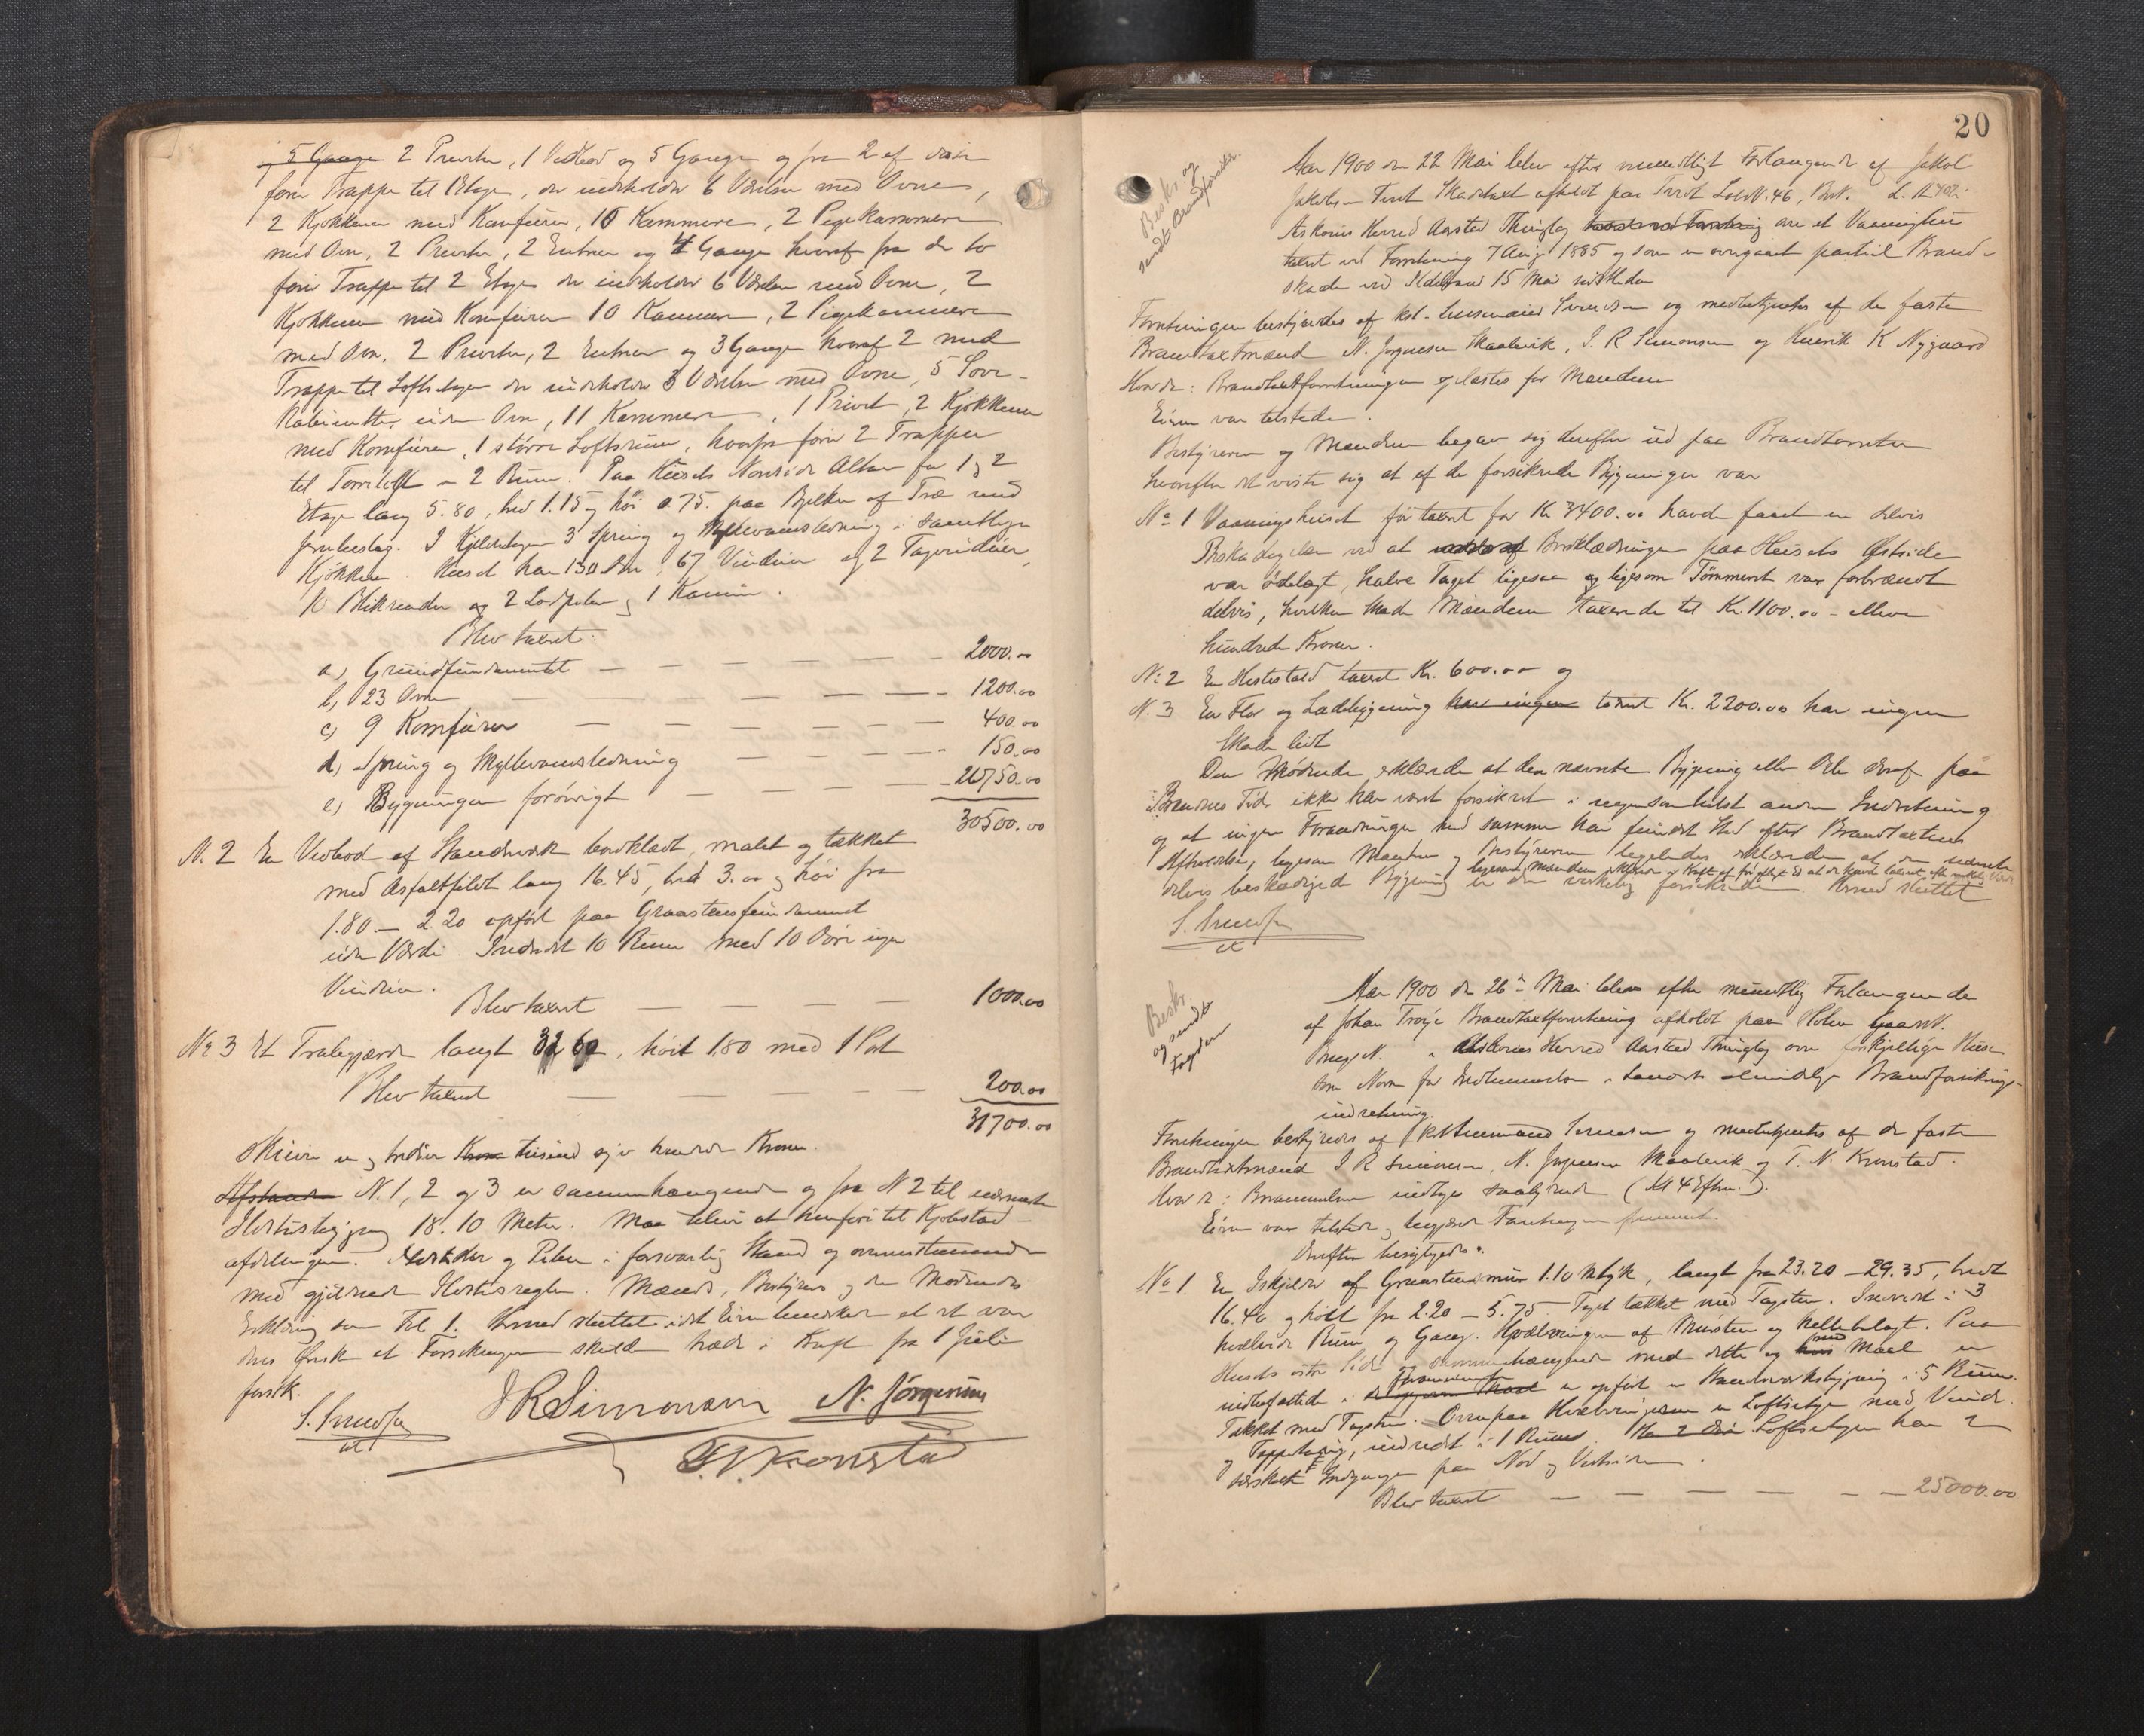 5 Gange 2 Priveter, 1 Vedbod og 5 Gange og fra 2 af disse
fører Trappe til 1 Etage, der indeholder 6 Værelser med Ovne,
2 Kjøkkener med Komfurer, 10 Kammere, 2 Pigekammere
med Ovn, 2 Priveter, 2 Entreer og 4 Gange hvoraf fra de to
fører Trappe til 2 Etage der indeholder 6 Værelser med Ovne, 2
Kjøkkener med Komfurer 10 Kammere, 2 Pigekammere
med Ovn, 2 Priveter, 2 Entreer og 3 Gange hvoraf 2 med
Trappe til Loftsetagen der indeholder 3 Værelser med Ovne, 5 Sove-
kabinetter uden Ovn, 11 Kammere, 1 Privet, 2 Kjøkkener
med Komfurer, 1 større Loftsrum, hvorfra fører 2 Trapper
til Tørreloft - 2 Rum. Paa Husets Nordside Altan for 1 og 2
Etage lang 5.80, bred 1.15 og høi 0.75. paa Bjelker af Træ med
Jernbeslag. I Kjelderetagen 3 Spring og Skyllevandsledning i samtlige
Kjøkkener. Huset har 130 Døre, 67 Vinduer og 2 Tagvinduer,
10 Blikrender og 2 Lodpiber og 1 Kamin.
Blev taxeret:
a) Grundfundamentet — 2000.00
b) 23 Ovne — 1200.00
c) 9 Komfurer — 400.00
d) Spring og Skyllevandsledning — 150.00
e) Bygningen forøvrigt — 26750.00
30500.00
N. 2 En Vedbod af Standværk bordklædt, malet og tækket
med Asfaltfildt lang 16.45, bred 3.00 og høi fra
1.80 — 2.20 opført paa Graastensfundament
uden Værdi. Indredet 10 Rum med 10 Døre ingen
Vinduer.
Blev taxeret — 1000.00
No 3 Et Træbegjærde langt 32 60, høit 1.80 med 1 Port
Blev taxeret — 200.00
31700.00
skriver en og tredive Kron tusind syv hundrede Kroner.
Afstanden N. 1, 2 og 3 er sammenhængende og fra N 2 til nærmeste
Husbygning 18.10 Meter. Maa blive at henføre til Kjøbstad-
afdelingen. Ildsteder og Piber i forsvarlig Stand og overensstemmende
med gjældende Regler. Mænds, Bestyrers og den Mødendes
Erklæring som Fol 1. Hermed sluttet idet Eieren bemærker at det var
hans Ønske at Forsikringen skulde træde i Kraft fra 1 Juli
førstk.
S. Svendsen
cst
J R Simonsen N. Jörgensen
T. N. Kronstad
20
Beskr. og
sendt Brandforsikr.
Aar 1900 den 22 Mai blev efter mundtligt Forlangende af Jakob
Jakobsen Tveit Skadetaxt afholdt paa Tveit Løb N. 46, Br N. i
Askøens Herred Aarstad Thinglag over et Vaaningshus
taxeret ved Forretning 7 Aug. 1885 og som er overgaaet partiel Brand-
skade ved Ildebrand 15 Mai sidstleden
Forretningen bestyredes af kst. Lensmand Svendsen og medbetjentes af de faste
Brandtaxtmænd N. Jørgensen Skaalevik, J. R Simonsen og Henrik K Nygaard
Hvorda: Brandtaxtforretningen oplæstes for Mændene
Eieren var tilstede.
Bestyreren og Mændene begav sig derefter ud paa Brandtomten
hvorefter det viste sig at af de forsikrede Bygninger var
No 1 Vaaningshuset før taxeret for Kr 3400.00 havde faaet en delvis
Beskadigelse ved at Bordklædningen paa Husets Østside
var ødelagt, halve Taget ligesaa og ligesom Tømmeret var forbrændt
delvis, hvilken Skade Mændene taxerede til Kr. 1100.00 — elleve
hundrede Kroner.
N: 2 En Hestestald taxeret Kr. 600.00 og
N. 3 En Flor og Ladebygning har ingen taxeret Kr. 2200.00 har ingen
Skade lidt
Den Mødende erklærede at den nævnte Bygning eller Dele deraf paa
Brandens Tid ikke har været forsikret i nogensomhelst anden Indretning
og at ingen Forandringer med samme har fundet Sted efter Brandtaxtens
Afholdelse, ligesom Mændene og Bestyreren ligeledes erklærede at den nævnte
delvis beskadigede Bygning er den virkelig forsikrede. Hermed sluttet
S. Svendsen
cst
Beskr.
og sendt
Fogden
Aar 1900 den 26de Mai blev efter mundtlig Forlangende
af Johan Troye Brandtaxtforretning afholdt paa Holen Gaard N.
Brugs N. i Askøens Herred Aarstad Thinglag over forskjellige Huse
som Norm for Indlemmelse i Landets almindelige Brandforsikrings-
indretning.
Forretningen bestyredes af kst Lensmand Svendsen og medbetjentes af de faste
Brandtaxtmænd J R Simonsen, N. Jørgensen Skaalevik og T. N. Kronstad.
Hvorda: Brammelsen indtages saalydende (Kl 4 Efterm.).
Eieren var tilstede og begjærede Forretningen fremmet.
Derefter besigtigedes:
No 1. En Iskjelder af Graastensmur 1.10 M tyk, langt fra 23.20 — 29.35, bredt
16.40 og høit fra 2.20 — 5.75. Taget tækket med Tagsten. Indredet i 3
hvælvede Rum og Gang. Hvælvingen af Mursten og hellebelagt. Paa
Husets østre Side og sammenhængende med dette og med Mael er
indbefattede i er opført en Standværksbygning i 5 Rum.
Tækket med Tagsten. Ovenpaa Hvælvingerne er Loftsetage med Vindu
og indredt i 1 Rum. Loftsetagen har 2
særskilte Indgange paa Nord og Vestsiden.
Blev taxeret — 25000.00